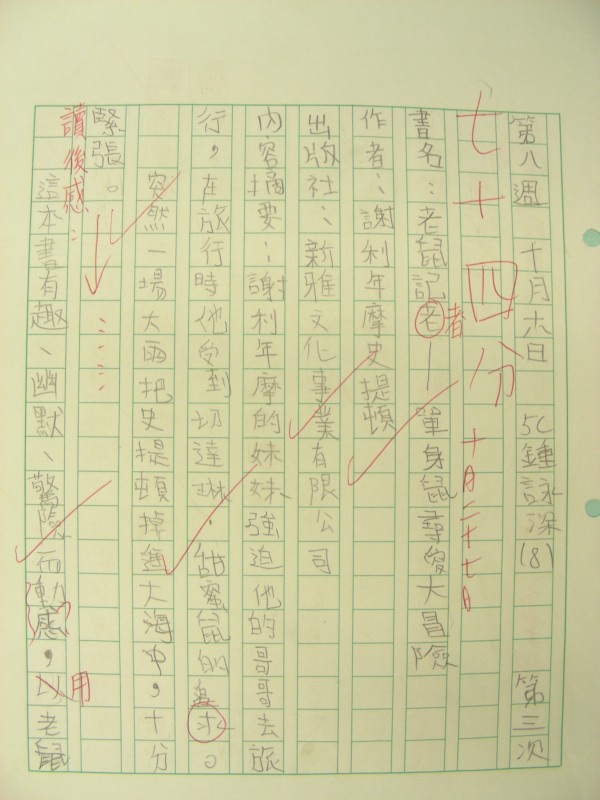 第八週 十月六日 5C鍾詠深(8) 第三次
七十四分 十月二十七日
書名：老鼠記老—單身鼠尋愛大冒險
者
作者：謝利年摩史提頓
出版社：新雅文化事業有限公司
內容摘要：謝利年摩的妹妹強迫他的哥哥去旅
行，在旅行時他受到切達琳·甜蜜鼠的求。
突然一場大雨把史提頓掉進大海中，十分
緊張。
讀後感：
這本書有趣、幽默、驚險而動感，以老鼠
用